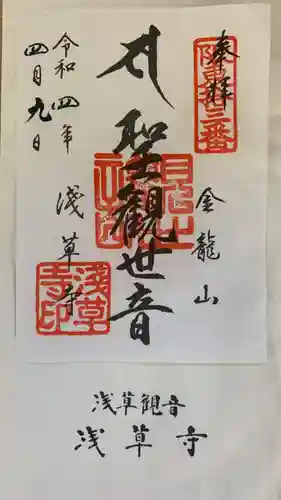 奉拝
坂東十三番
金龍山
聖觀世音
淺草寺
令和四年
四月九日
淺草寺印
浅草観音
浅草寺